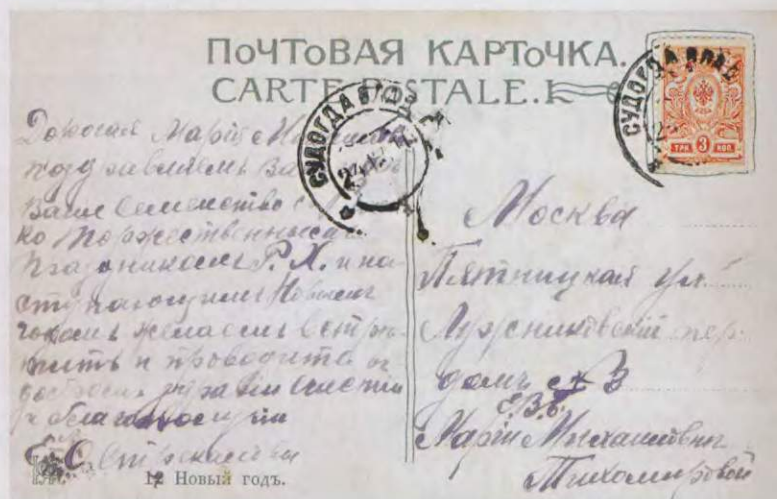 ПОЧТОВАЯ КАРТОЧКА.
CARTE POSTALE.
СУДОГДА ВЛАД
СУДОГДА ВЛАД
ТРИ 3 КОП.
Дорогая Марія
поздравляемъ Ва
Ваше Семейство с
ко торжественным
праздникомъ Р. Х. и на-
ступающимъ Новымъ
годомъ желаемъ встре-
тить и проводить
добромъ здравіи
и благополучіи
Москва
Пятницкая ул.
Лужниковскій пер
домъ № 3
Е.В.Б.
Маріи Михайловны
Тихомировой
12 Новый годъ.